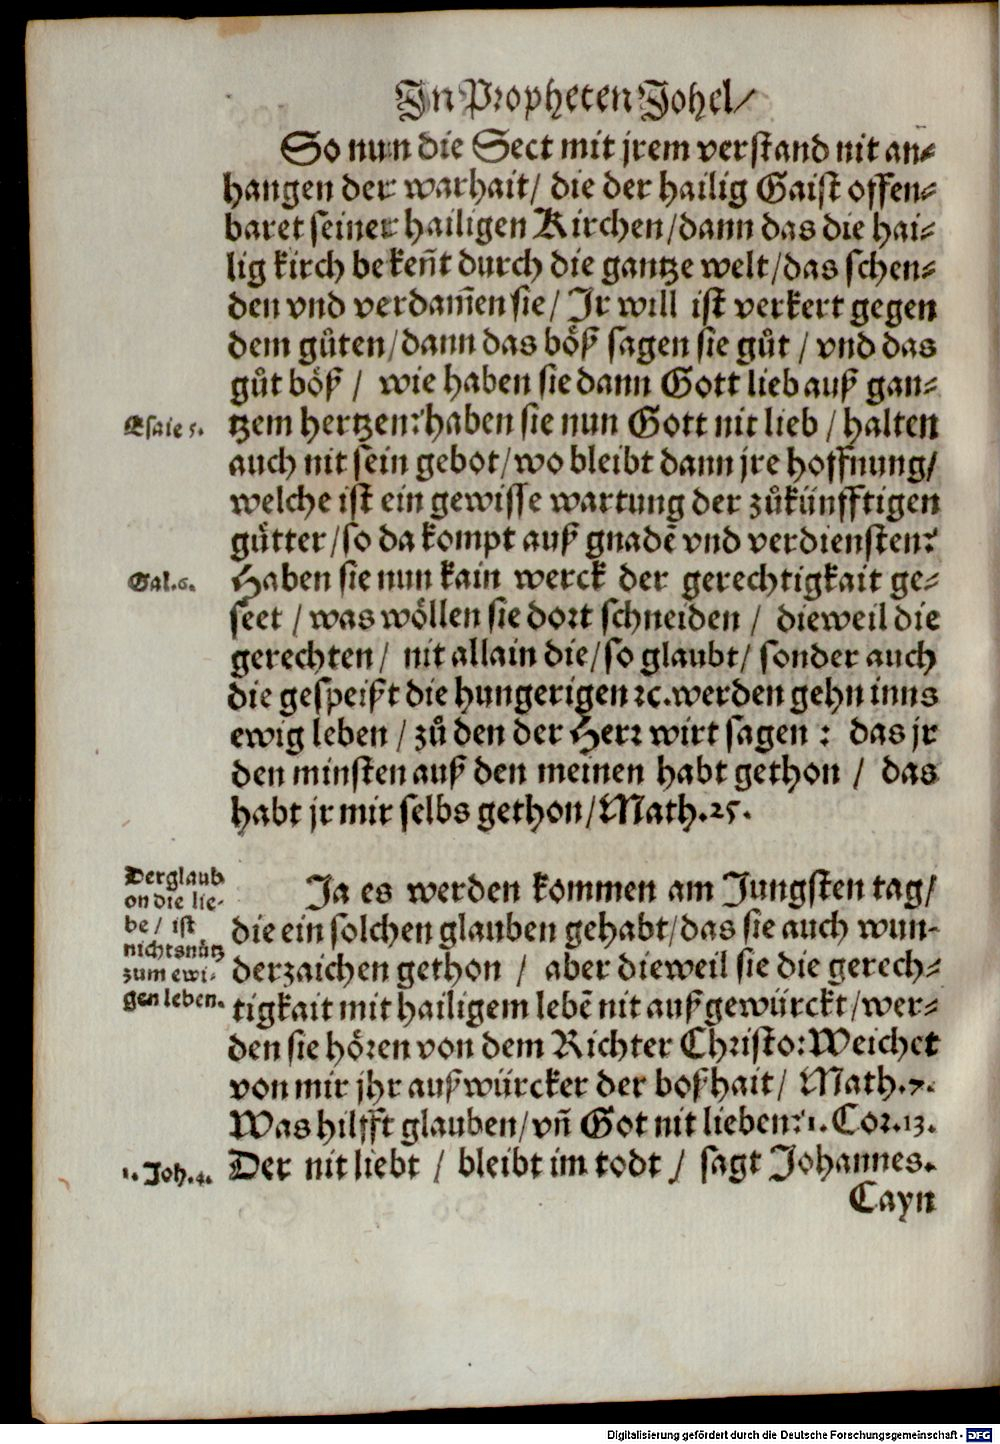 In Propheten Johel/
So nun die Sect mit jrem verstand nit an⸗
hangen der warhait/ die der hailig Gaist offen⸗
baret seiner hailigen Kirchen/dann das die hai⸗
lig kirch bekeñt durch die gantze welt/das schen⸗
den vnd verdam̃en sie/ Ir will ist verkert gegen
dem gůten/dann das bóß sagen sie gůt / vnd das
gůt bóß / wie haben sie dann Gott lieb auß gan⸗
Esaie 5.
tzem hertzen? haben sie nun Gott nit lieb / halten
auch nit sein gebot/wo bleibt dann jre hoffnung/
welche ist ein gewisse wartung der zůkünfftigen
gůtter/so da kompt auß gnadẽ vnd verdiensten?
Gal.6.
Haben sie nun kain werck der gerechtigkait ge⸗
seet / was wöllen sie dort schneiden / dieweil die
gerechten/ nit allain die/so glaubt/ sonder auch
die gespeißt die hungerigen ꝛc.werden gehn inns
ewig leben / zů den der Herr wirt sagen : das jr
den minsten auß den meinen habt gethon / das
habt jr mir selbs gethon/Math.25.
Der glaub
on die lie-
be / ist
nichtsnütz
zum ewi-
gen leben.
Ja es werden kommen am Jungsten tag/
die ein solchen glauben gehabt/das sie auch wun-
derzaichen gethon / aber dieweil sie die gerech⸗
tigkait mit hailigem lebẽ nit außgewürckt/wer⸗
den sie hören von dem Richter Christo: Weichet
von mir jhr außwürcker der boßhait/ Math.7.
Was hilfft glauben/vñ Got nit lieben? 1. Cor.13.
1. Joh.4.
Der nit liebt / bleibt im todt / sagt Johannes.
Cayn
Digitalisierung gefördert durch die Deutsche Forschungsgemeinschaft - DFG